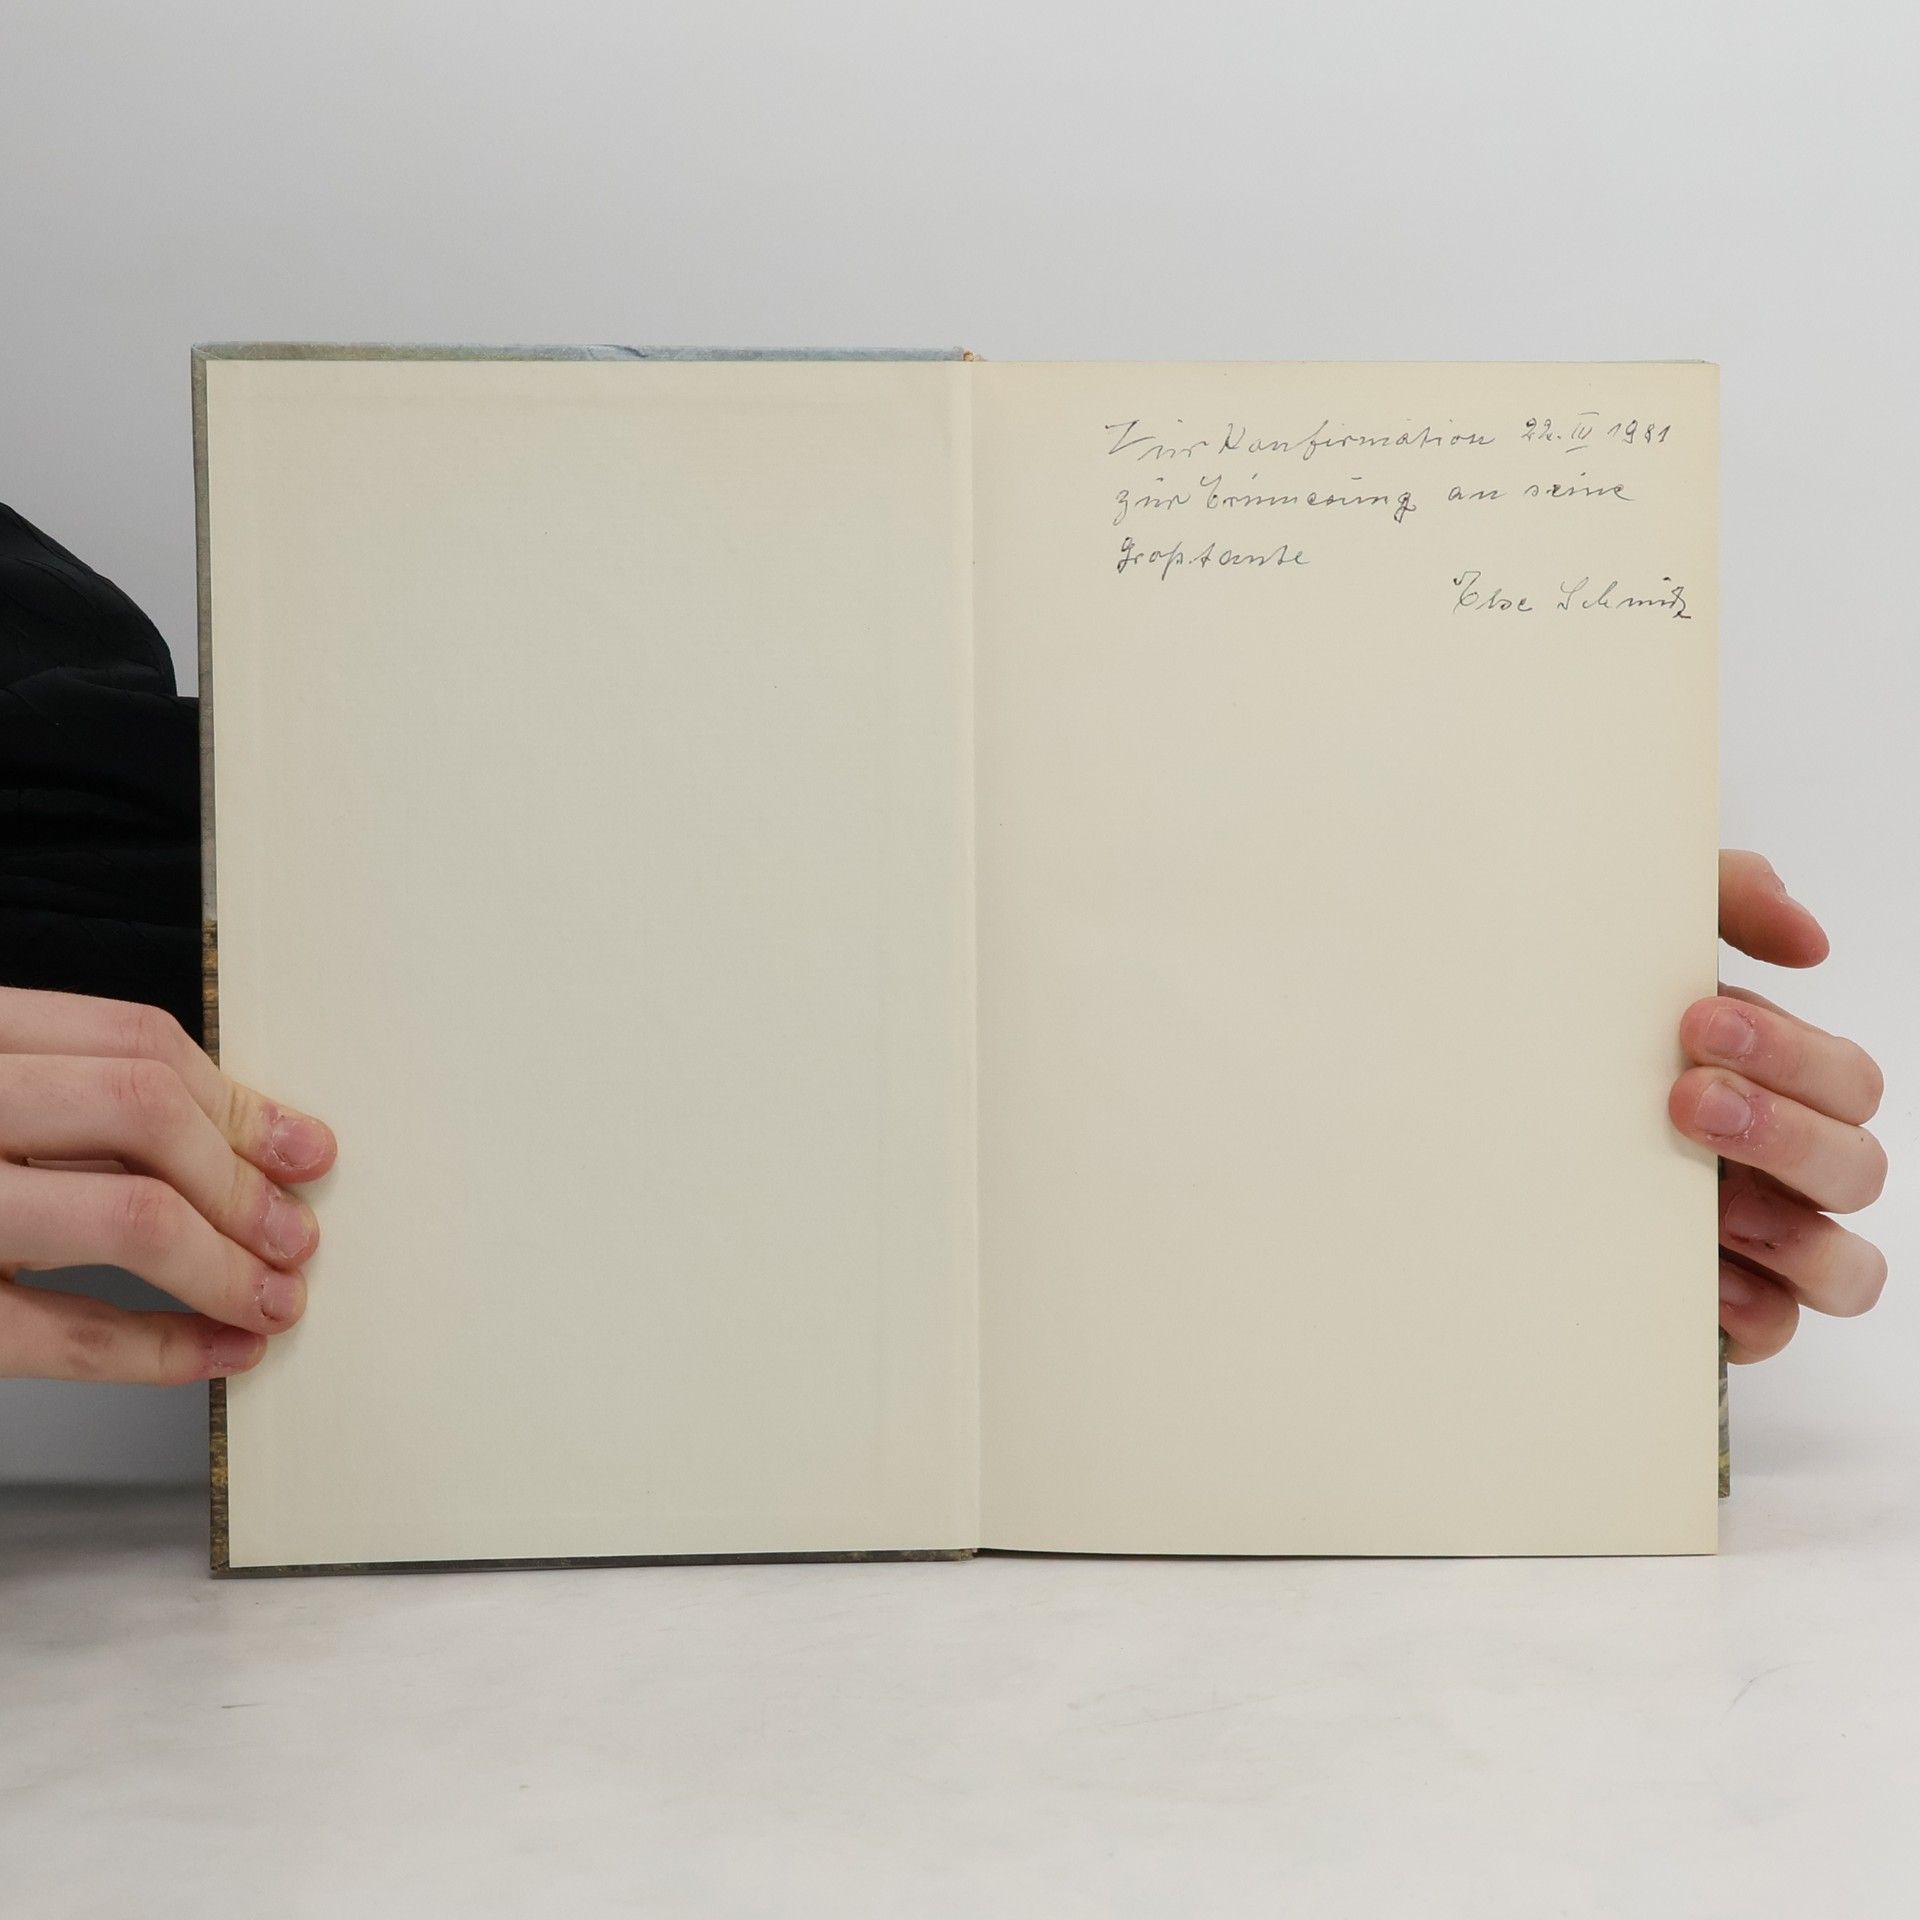 Zur Konfirmation 22. IV 1981
zur Erinnerung an seine
Großtante
Else Schmitz